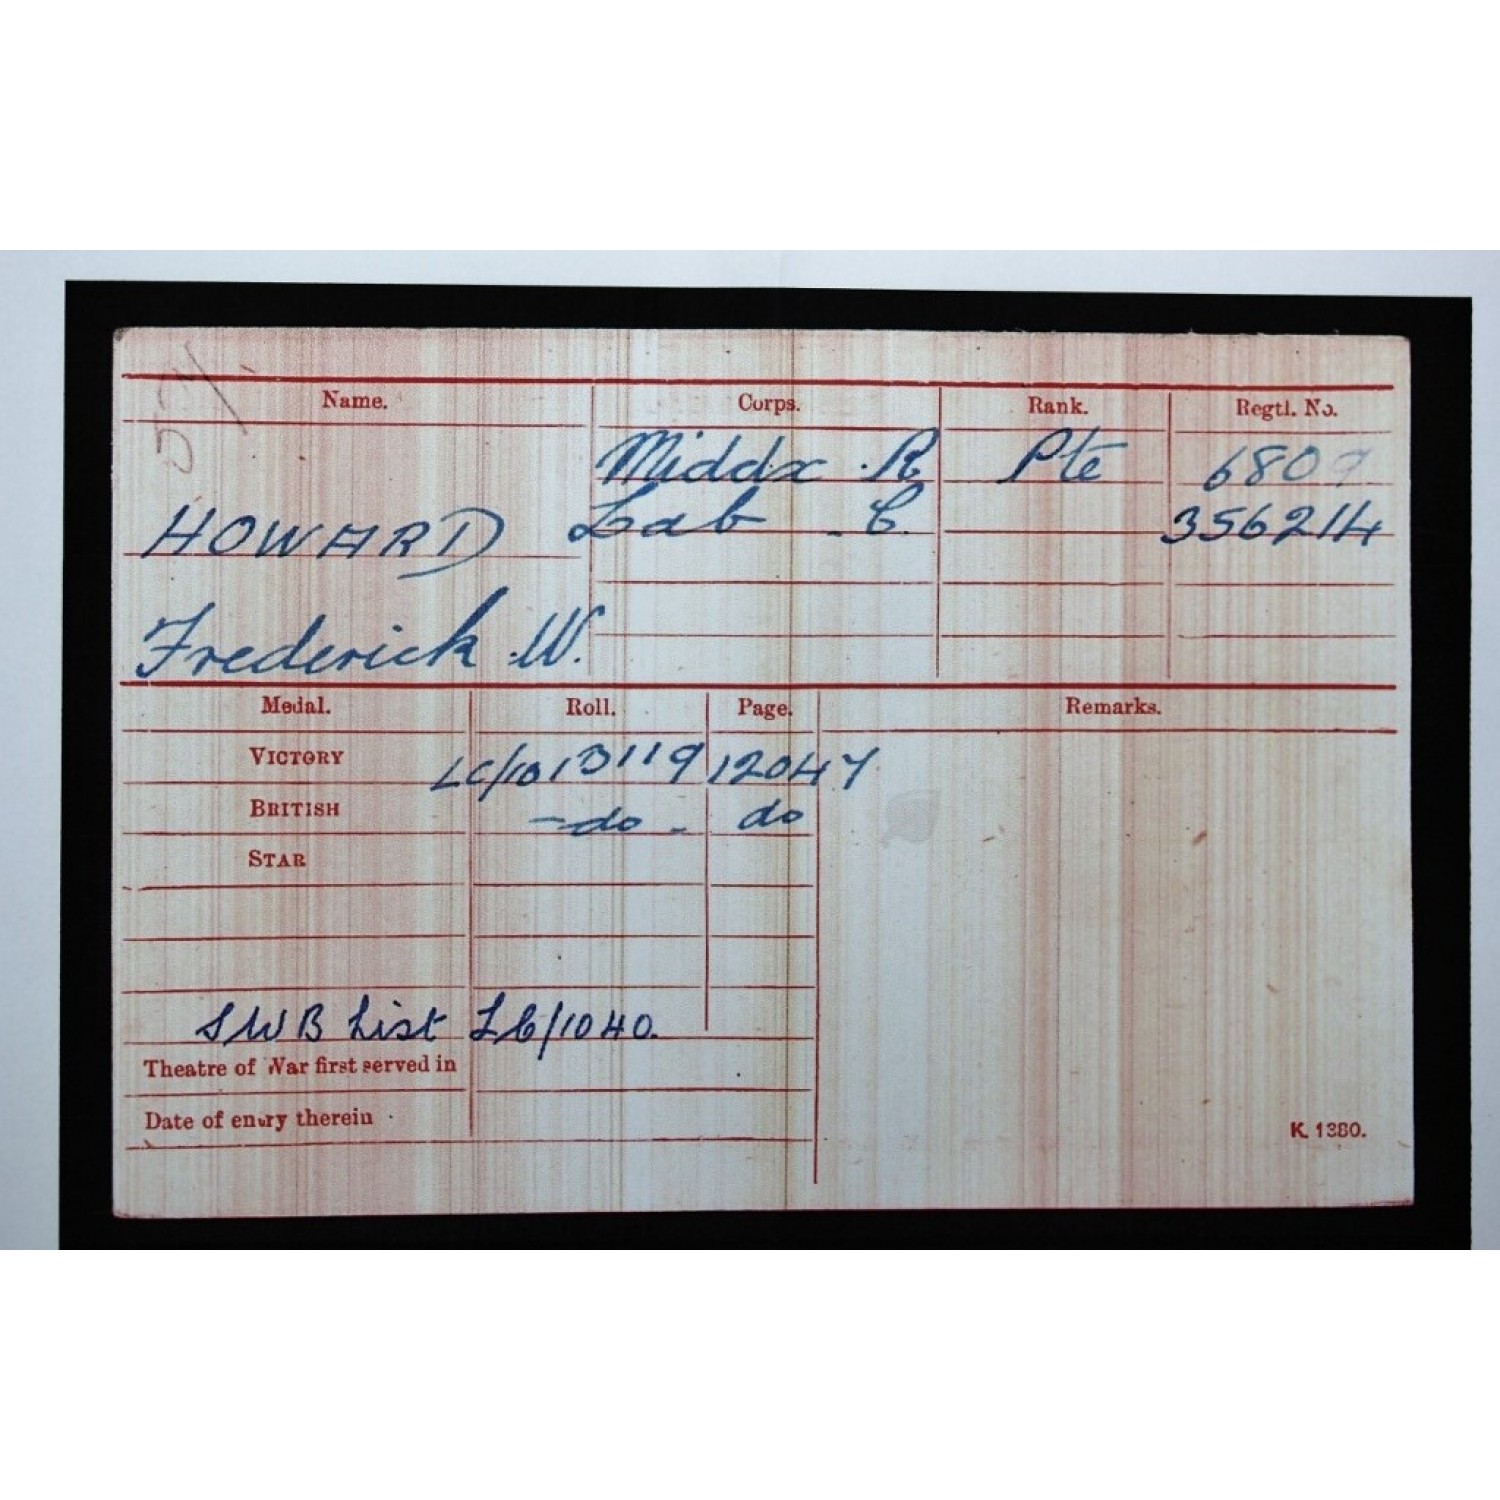 Name. Corps. Rank. Regtl. No.
Middx . R Pte 6809
HOWARD Lab . C. 356214
Frederick . W.
Medal. Roll. Page. Remarks.
VICTORY LC/101B119 12047
BRITISH - do - do
STAR
SWB List LC/1040.
Theatre of War first served in
Date of entry therein
K. 1380.